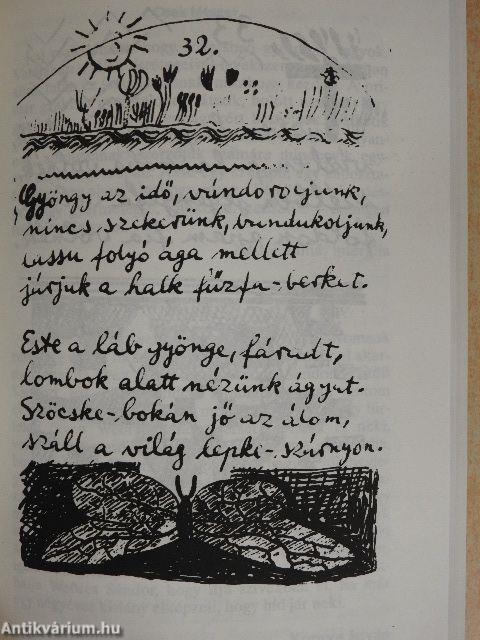 32.
Gyöngy az idő, vándoroljunk,
nincs szekerünk, vándukoljunk,
lassu folyó ága mellett
járjuk a halk fűzfa-berket.
Este a láb gyönge, fáradt,
lombok alatt nézünk ágyat.
Szöcske-bokán jő az álom,
száll a világ lepke-szárnyon.
Antikvárium.hu